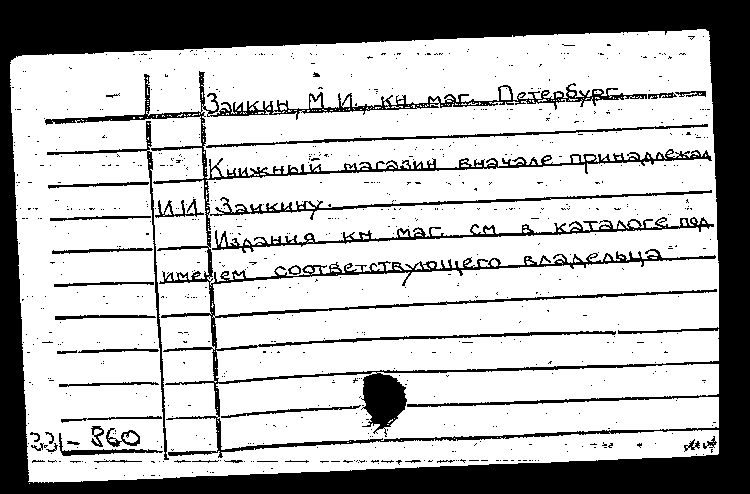 Заикин, М.И., кн. маг. Петербург.
Книжный магазин вначале принадлежал
И.И. Заикину.
Издания кн маг. см в каталоге под
именем соответствующего владельца
331-860